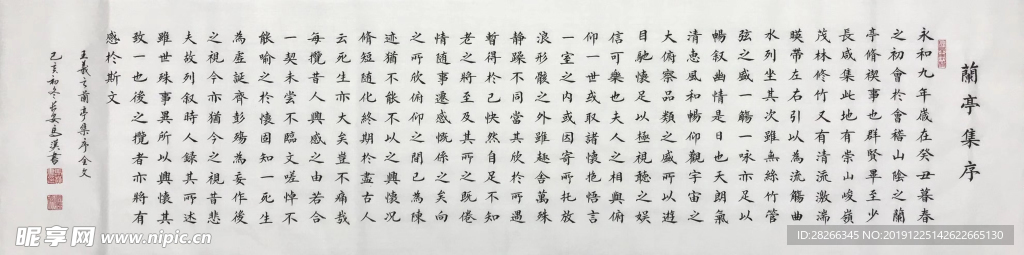 蘭亭集序
永和九年歲在癸丑暮春
之初會於會稽山陰之蘭
亭脩禊事也群賢畢至少
長咸集此地有崇山峻嶺
茂林修竹又有清流激湍
暎帶左右引以為流觴曲
水列坐其次雖無絲竹管
弦之盛一觴一詠亦足以
暢叙幽情是日也天朗氣
清惠風和暢仰觀宇宙之
大俯察品類之盛所以遊
目騁懷足以極視聽之娛
信可樂也夫人之相與俯
仰一世或取諸懷抱悟言
一室之內或因寄所托放
浪形骸之外雖趣舍萬殊
靜躁不同當其欣於所遇
暫得於己快然自足不知
老之將至及其所之既倦
情隨事遷感慨係之矣向
之所欣俯仰之間已為陳
迹猶不能不以之興懷况
脩短隨化終期於盡古人
云死生亦大矣豈不痛哉
每攬昔人興感之由若合
一契未嘗不臨文嗟悼不
能喻之於懷固知一死生
為虛誕齊彭殤為妄作後
之視今亦猶今之視昔悲
夫故列叙時人錄其所述
雖世殊事異所以興懷其
致一也後之攬者亦將有
感於斯文
王羲之蘭亭集序全文
己亥初冬
昵享网 www.nipic.cn
ID:28266345 NO:20191225142622665130